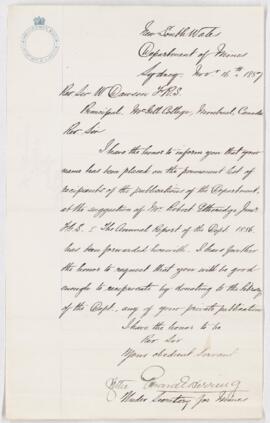 New South Wales
Department of Mines
Sydney Nov 16th 1887
Rev Sir W Dawson F.R.S.
Principal McGill College, Montreal, Canada
Rev Sir
I have the honor to inform you that your
name has been placed on the permanent list of
recipients of the publications of the Department,
at the suggestion of Mr. Robert Etheridge Junr
The Annual Report of the Dept. 1886
has been forwarded herewith. I have further
the honor to request that you will be good
enough to reciprocate by donating to the library
of the Dept. any of your private publications
I have the honor to be
Rev Sir
Your obedient Servant
Under Secretary for Mines